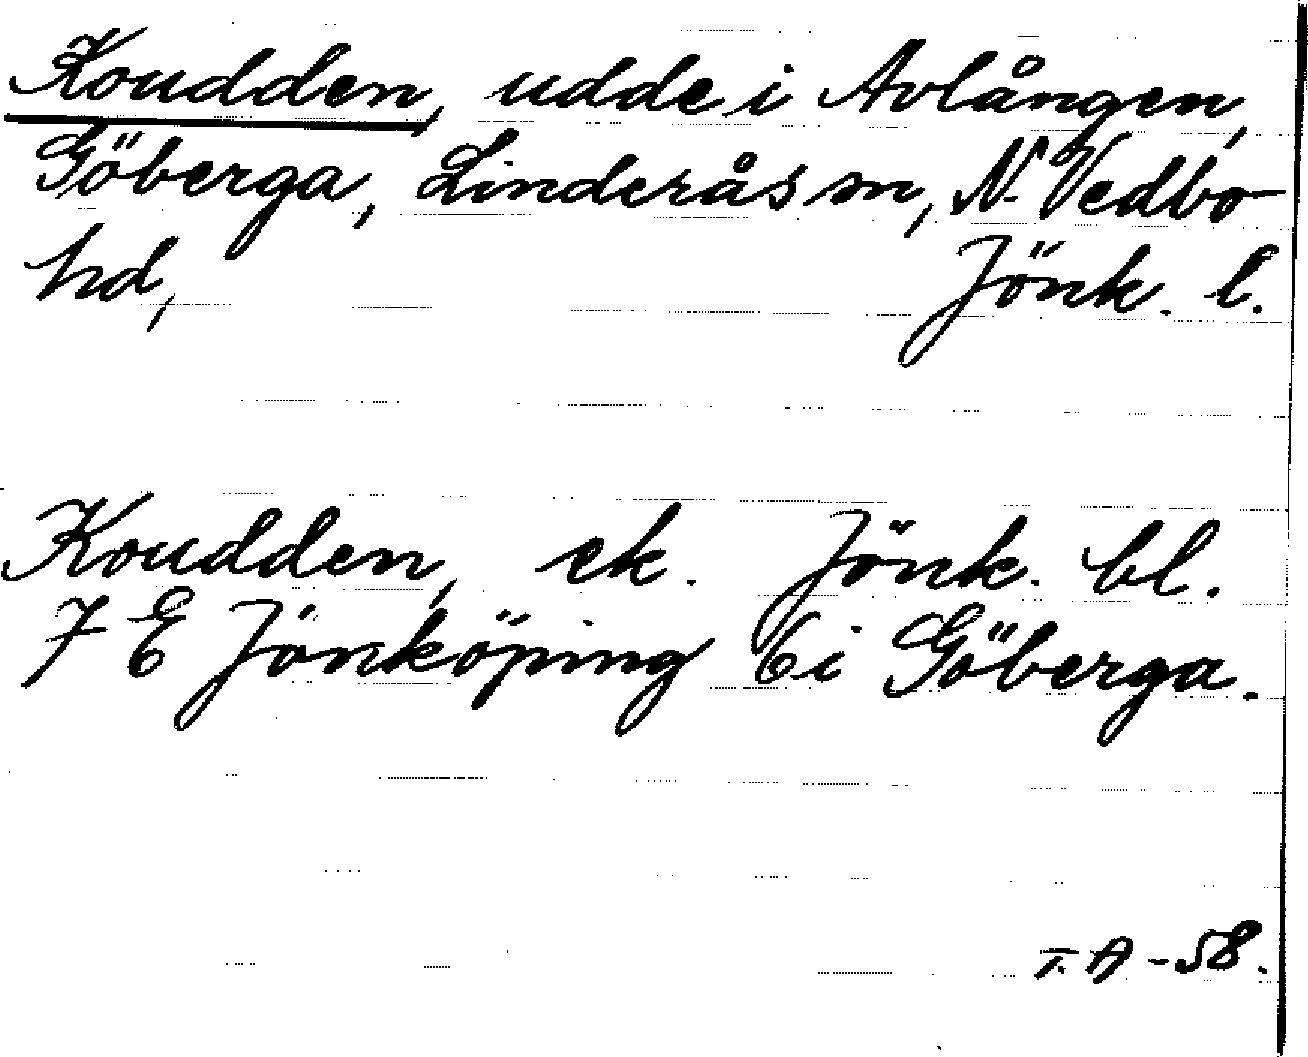 Koudden, udde i Avlången,
Göberga, Linderås sn, N. Vedbo
hd, Jönk. l.
Koudden, ek. Jönk. bl.
7 E Jönköping 6 i Göberga.
I. A - 58.